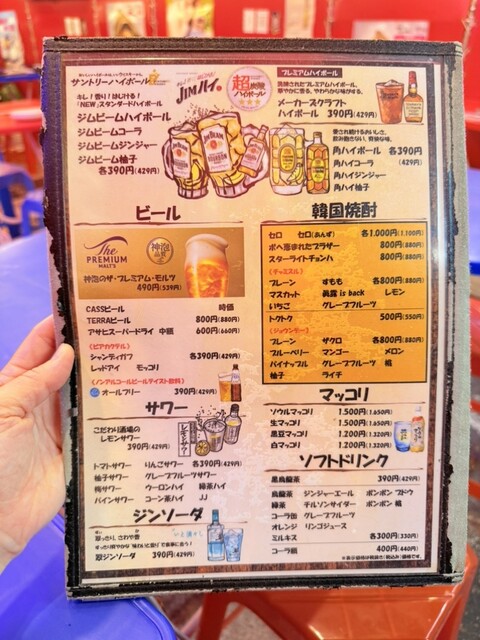 サントリーハイボール
「NEW」スタンダードハイボール
ジムビームハイボール
ジムビームコーラ
ジムビームジンジャー
ジムビーム柚子
各390円(429円)
JIMハイ
超炭酸
ハイボール
プレミアムハイボール
メーカーズクラフト
ハイボール 390円(429円)
角ハイボール 各390円
角ハイコーラ (429円)
角ハイジンジャー
角ハイ柚子
ビール
The
PREMIUM
MALT'S
神泡
品質
神泡のザ・プレミアム・モルツ
490円(539円)
CASSビール 時価
TERRAビール 800円(880円)
アサヒスーパードライ 中瓶 600円(660円)
(ビアカクテル)
シャンディガフ 各390円(429円)
レッドアイ モッコリ
(ノンアルコールビールテイスト飲料)
オールフリー 390円(429円)
サワー
こだわり酒場の
レモンサワー
390円(429円)
トマトサワー りんごサワー 各390円(429円)
柚子サワー グレープフルーツサワー
梅サワー ウーロンハイ 緑茶ハイ
パインサワー コーン茶ハイ JJ
ジンソーダ
翠ジンソーダ 390円(429円)
韓国焼酎
セロ セロ(あんず) 各1.000円(1.100円)
ボヘ恵まれたブラザー 800円(880円)
スターライトチョンハ 800円(880円)
(チャミスル)
プレーン すもも 各800円(880円)
マスカット 眞露 is back レモン
いちご グレープフルーツ
トクトク 500円(550円)
(ジョウンデー)
プレーン ザクロ 各800円(880円)
ブルーベリー マンゴー メロン
パイナップル グレープフルーツ 桃
柚子 ライチ
マッコリ
ソウルマッコリ 1.500円(1.650円)
生マッコリ 1.500円(1.650円)
黒豆マッコリ 1.200円(1.320円)
白マッコリ 1.200円(1.320円)
ソフトドリンク
黒烏龍茶 390円(429円)
烏龍茶 ジンジャーエール ポンポン ブドウ
緑茶 チルソンサイダー ポンポン 桃
コーラ缶 グレープフルーツ
オレンジ リンゴジュース
ミルキス 各300円(330円)
コーラ瓶 400円(440円)
※表示価格は税抜き(税込み)価格です。